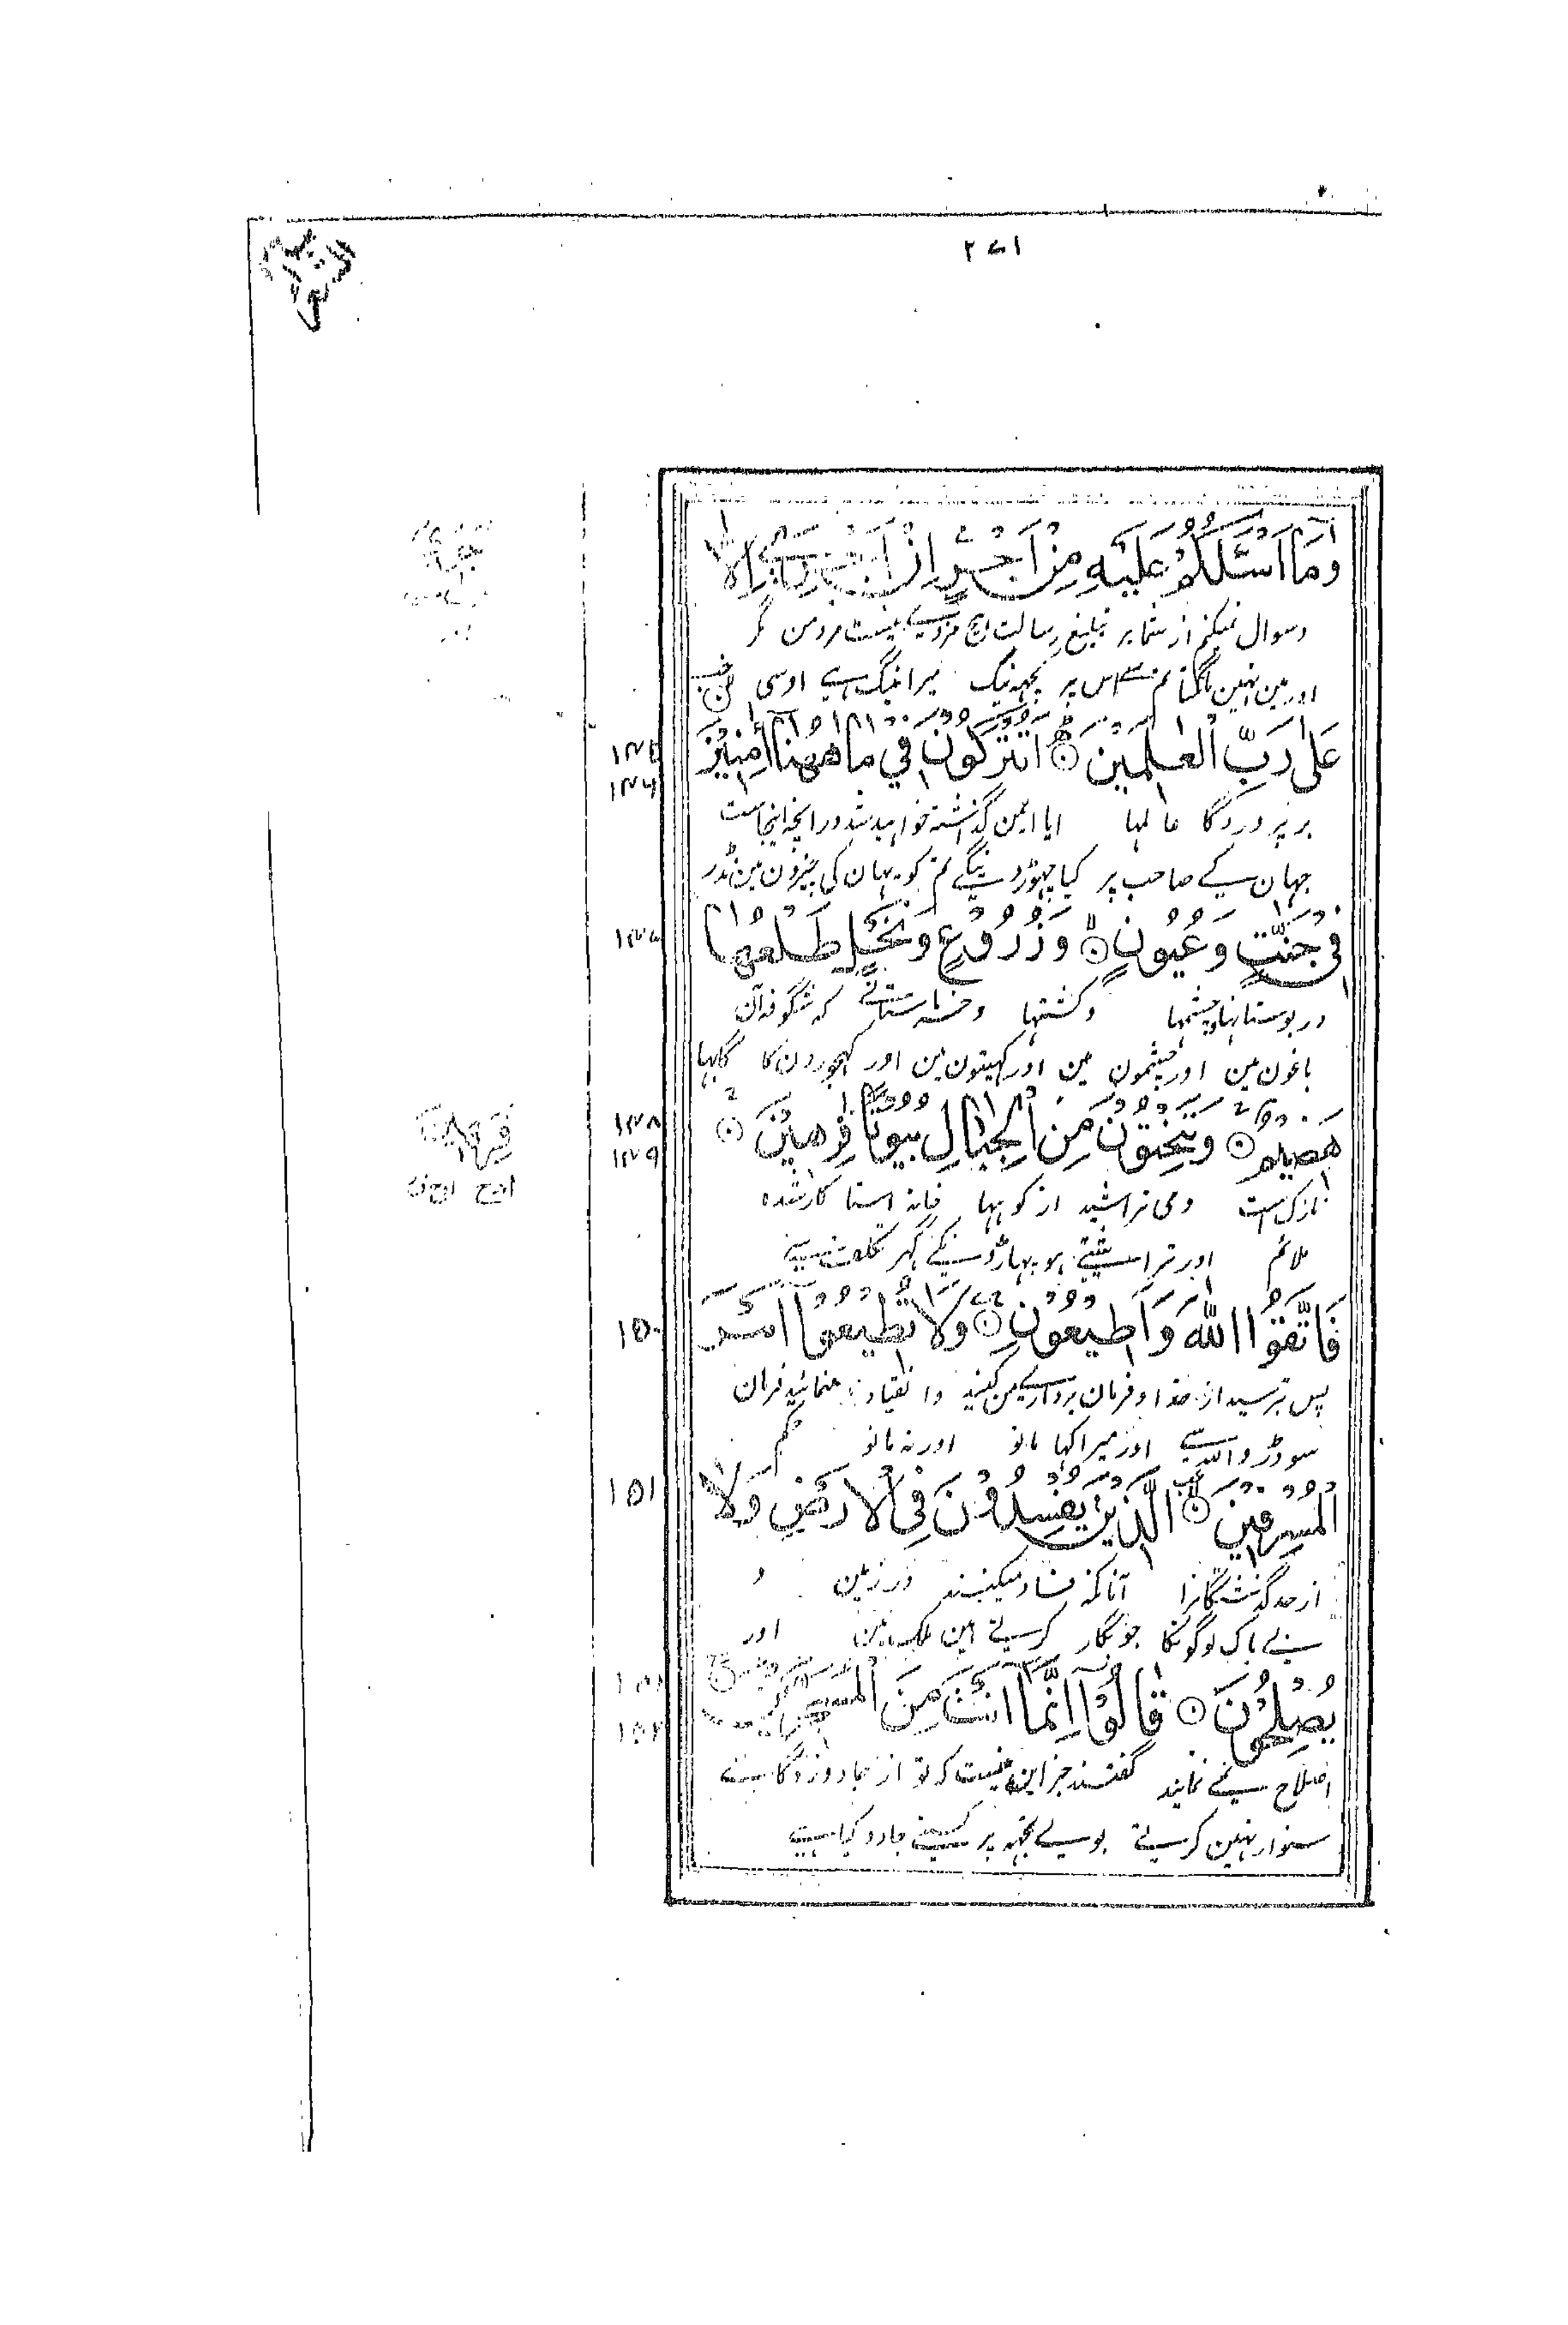 ۲۷۱
وَمَا اَسْئَلُكُمْ عَلَيْهِ مِنْ اَجْرٍ اِنْ اَجْرِيَ اِلَّا
وسوال نمیکنم از شما بر تبلیغ رسالت هیچ مزدے نیست مزد من مگر
اور مین نہین مانگتا تم سے اس پر کچہہ نیگ میرا نیگ ہے اوسی
عَلٰى رَبِّ الْعٰلَمِيْنَ ۝ اَتُتْرَكُوْنَ فِيْ مَا هٰهُنَا اٰمِنِيْنَ
۱۴۶
بر پروردگا عالمہا ایا ایمن گذاشتہ خواہید شد در انچہ اینجاست
جہان کے صاحب پر کیا چہوڑ دینگے تم کو یہان کی چیزون مین نڈر
فِيْ جَنّٰتٍ وَعُيُوْنٍ ۝ وَزُرُوْعٍ وَنَخْلٍ طَلْعُهَا
۱۴۷
در بوستانہا وچشمہا وکشتہا وخرماستانے کہ شگوفہ آن
باغون مین اور چشمون مین اور کہیتون مین اور کہجورون کا گابہا
هَضِيْمٌ ۝ وَتَنْحِتُوْنَ مِنَ الْجِبَالِ بُيُوْتًا فٰرِهِيْنَ ۝
۱۴۸
۱۴۹
نازک است ومی تراشید از کوہہا خانہ استا کار شدہ
ملائم اور تراشتے ہو پہاڑونکے گہر تکلف سے
فَاتَّقُوا اللّٰهَ وَاَطِيْعُوْنِ ۝ وَلَا تُطِيْعُوْا اَمْرَ
۱۵۰
پس بترسید از خدا وفرمان برداری من کنید وانقیاد منمائید فرمان
سو ڈرو اللہ سے اور میرا کہا مانو اور نہ مانو حکم
الْمُسْرِفِيْنَ ۝ الَّذِيْنَ يُفْسِدُوْنَ فِي الْاَرْضِ وَلَا
۱۵۱
از حد گذشتگانرا آنانکہ فساد میکنند در زمین و
بے باک لوگونکا جو بگار کرتے ہین ملک مین اور
يُصْلِحُوْنَ ۝ قَالُوْا اِنَّمَا اَنْتَ مِنَ الْمُسَحَّرِيْنَ ۝
اصلاح نمے نمایند گفتند جز این نیست کہ تو از جادوزدگانی
سنوار نہین کرتے بولے تجہہ پر کسینے جادو کیا ہے